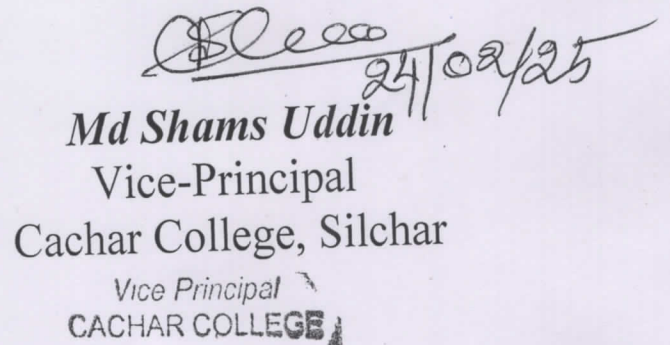 24/02/25
Md Shams Uddin
Vice-Principal
Cachar College, Silchar
Vice Principal
CACHAR COLLEGE